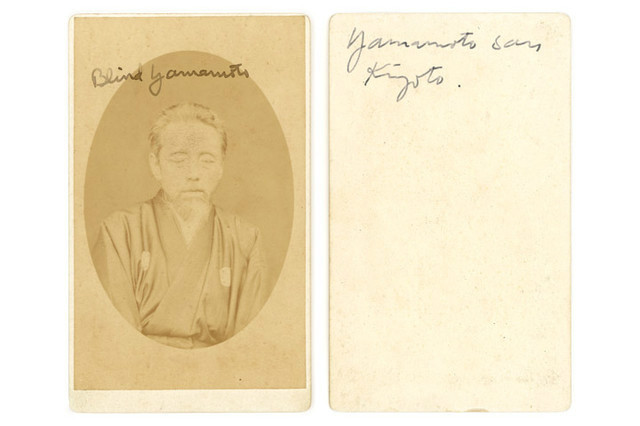 Blind Yamamoto
Yamamoto san
Kiyoto.